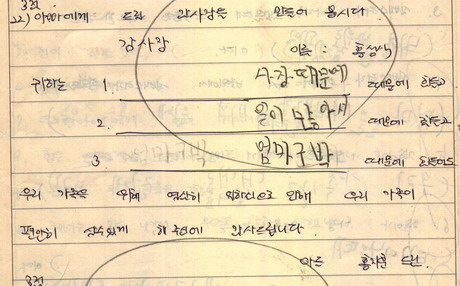 3학년
22) 아빠에게 드릴 감사장을 만들어 봅시다
감사장
이름 : 홍성식
귀하는 1 사장때문에 때문에 힘들고
2. 일이 많아서 때문에 힘들고
3 엄마구박 때문에 힘들어도
우리 가족을 위해 열심히 일하심으로 인해 우리 가족이
편안히 살수있게 해 주심에 감사드립니다.
아들 드림